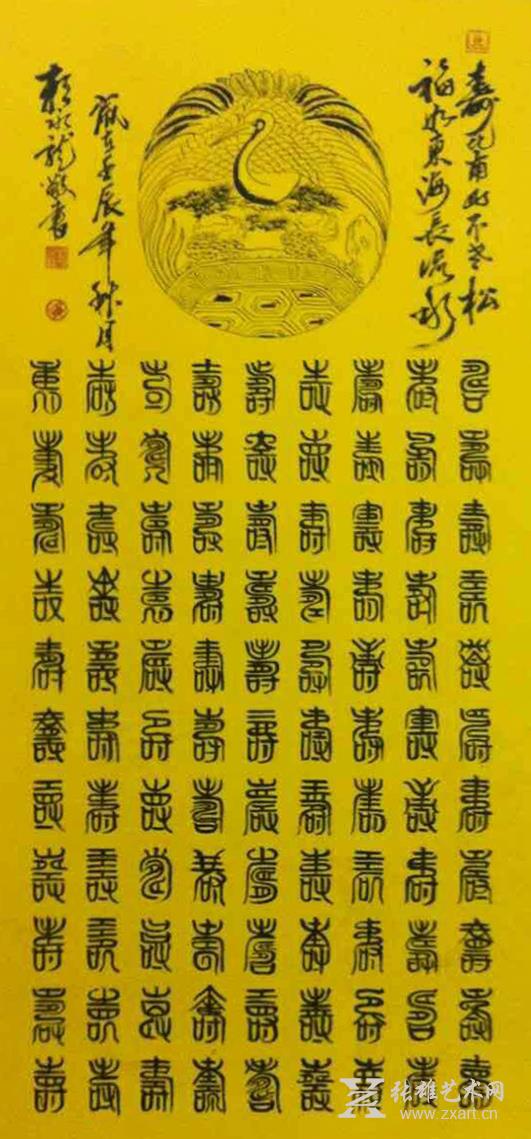 壽比南山不老松
福如東海長流水
歲在壬辰年秋月
龍敬書
壽壽壽壽壽壽壽壽壽壽壽
壽壽壽壽壽壽壽壽壽壽壽
壽壽壽壽壽壽壽壽壽壽壽
壽壽壽壽壽壽壽壽壽壽壽
壽壽壽壽壽壽壽壽壽壽壽
壽壽壽壽壽壽壽壽壽壽壽
壽壽壽壽壽壽壽壽壽壽壽
壽壽壽壽壽壽壽壽壽壽壽
壽壽壽壽壽壽壽壽壽壽壽
张雄艺术网
www.zxart.cn